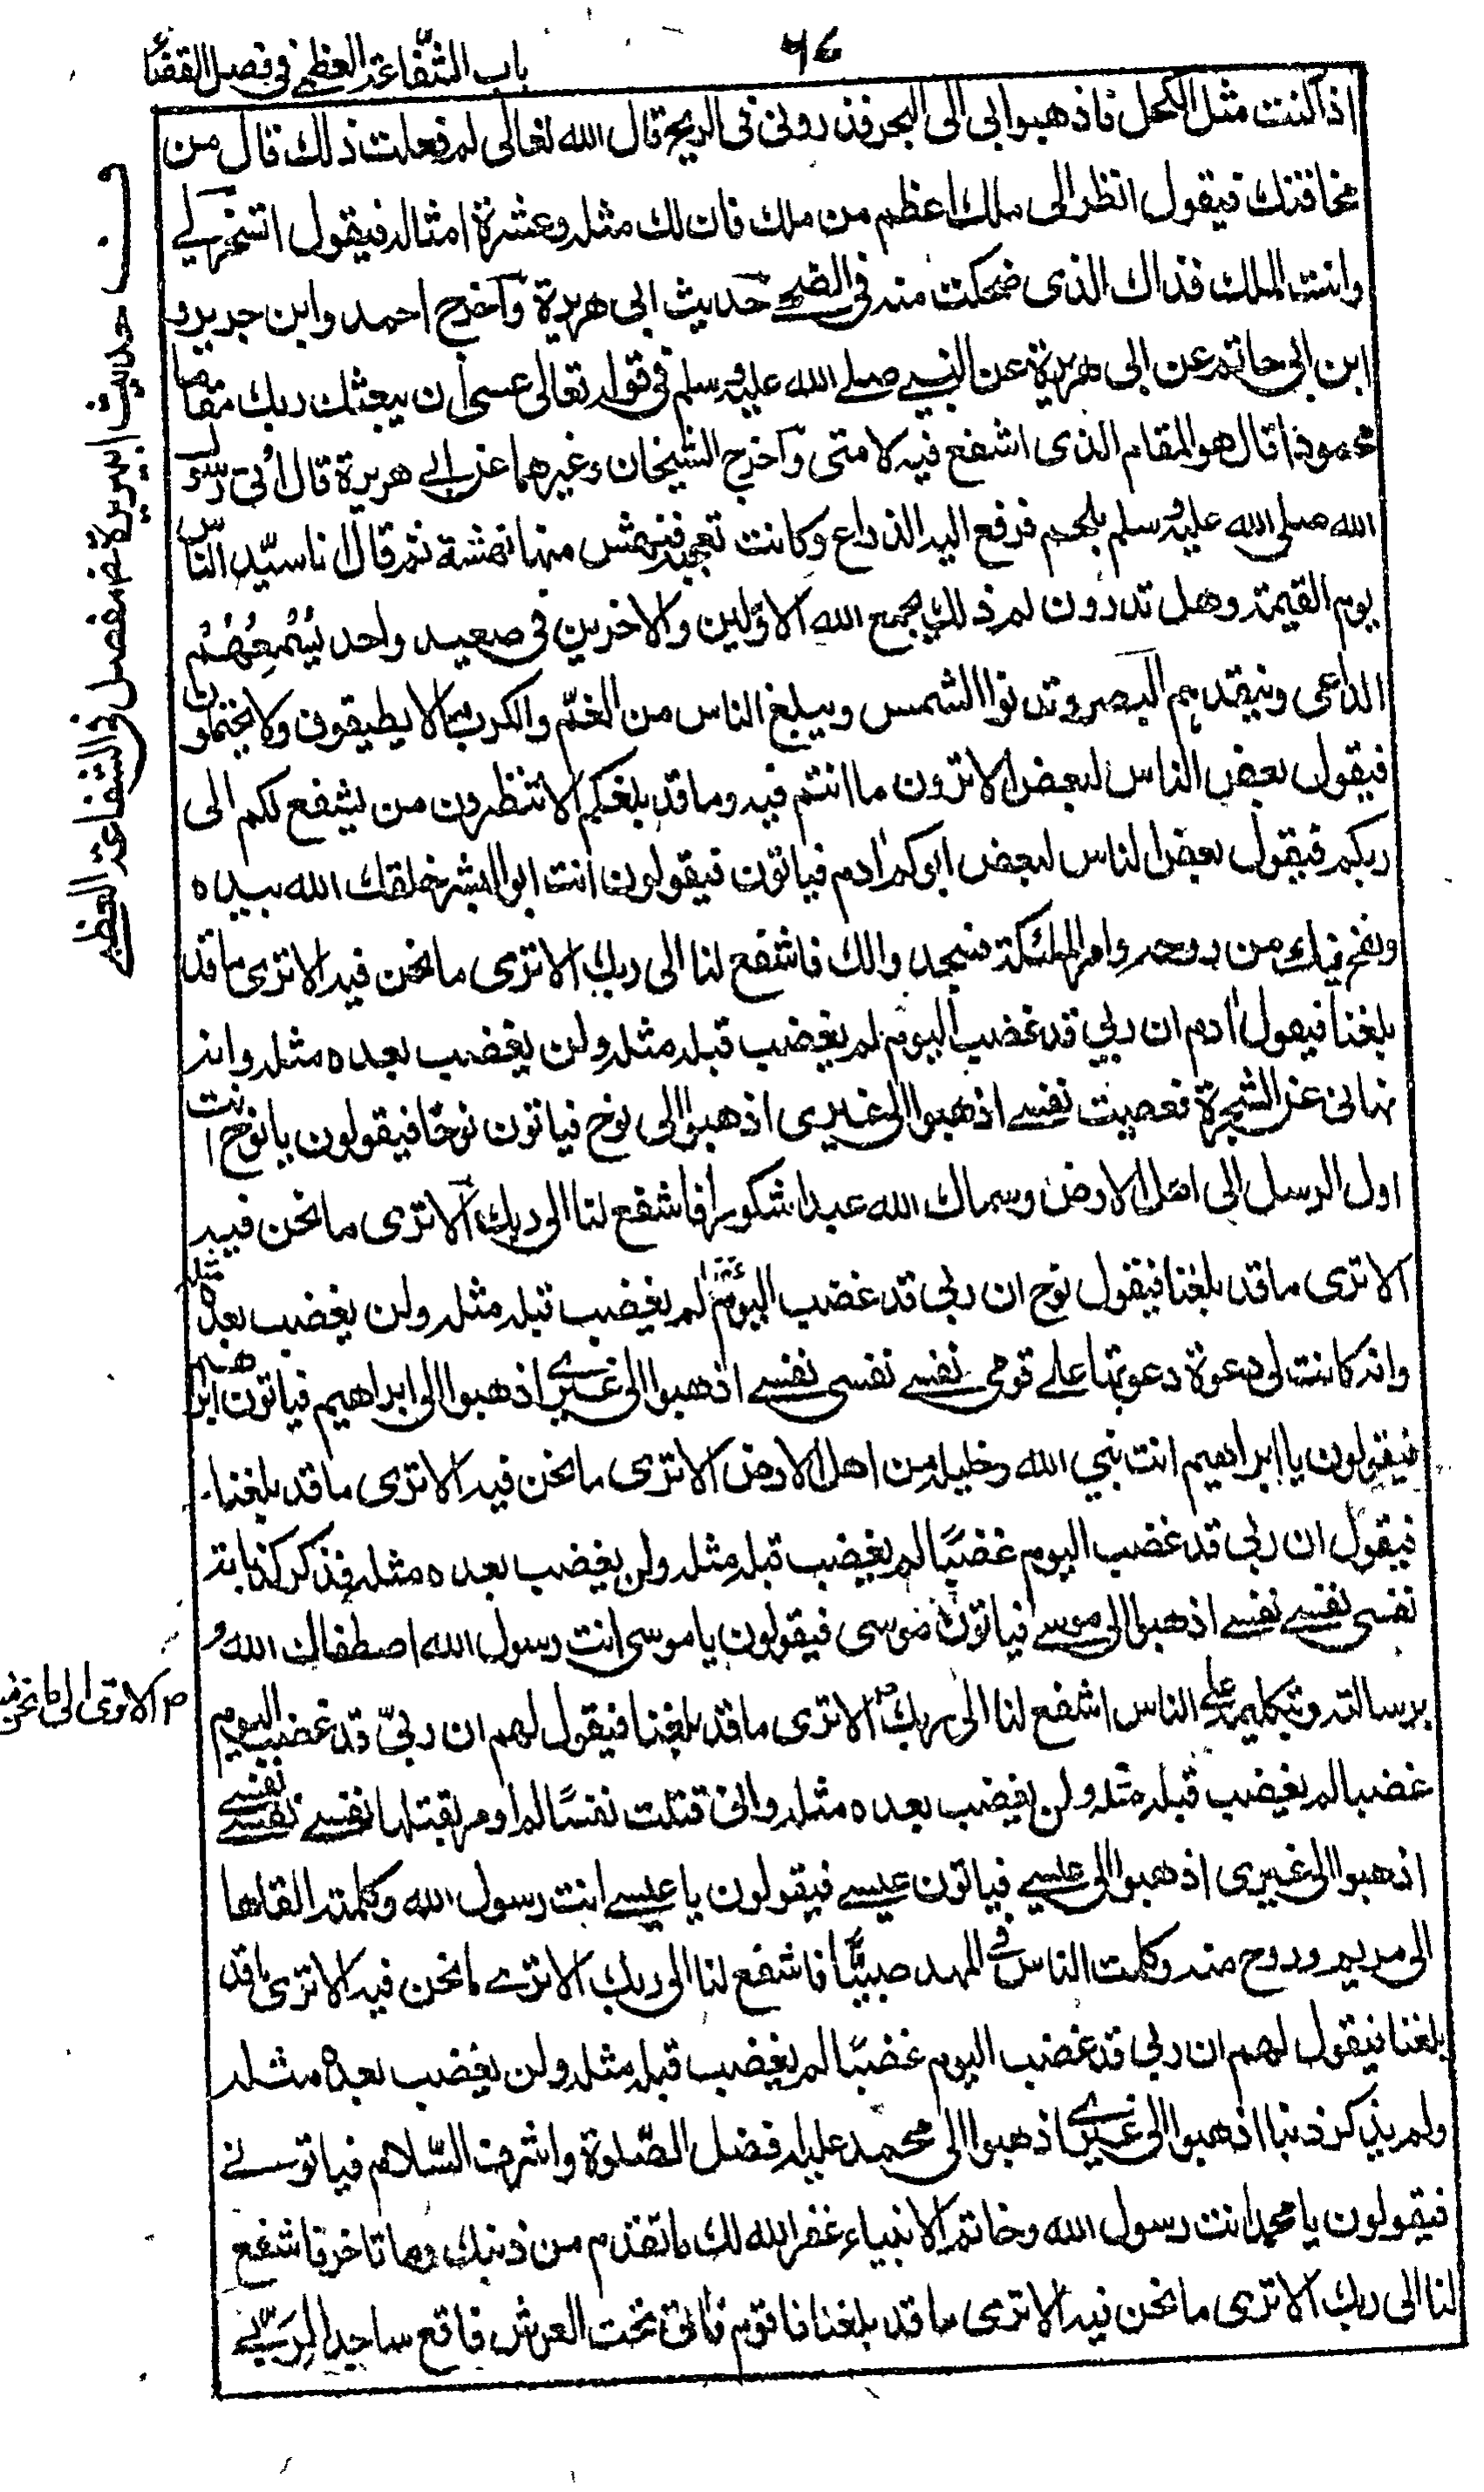 باب الشفاعة العظمى فى فصل القضاء
٧٤
اذا كنت مثل الكحل فاذهبوا بى الى البحر فذرونى فى الريح قال الله تعالى لم فعلت ذلك قال من
مخافتك فيقول انظر الى ملك اعظم من ملك فان لك مثله وعشرة امثاله فيقول اتسخر لى
وانت الملك فذاك الذى ضحكت منه فى الضحى حديث ابى هريرة واخرج احمد وابن جرير و
ابن ابى حاتم عن ابى هريرة عن النبى صلى الله عليه وسلم فى قوله تعالى عسى ان يبعثك ربك مقاما
محمودا قال هو المقام الذى اشفع فيه لامتى واخرج الشيخان وغيرهما عن ابى هريرة قال اُتى رسول
الله صلى الله عليه وسلم بلحم فرفع اليه الذراع وكانت تعجبه فنهش منها نهشة ثم قال انا سيّد النّاس
يوم القيمة وهل تدرون لم ذلك يجمع الله الاوّلين والاخرين فى صعيد واحد يُسْمِعُهُم
الداعى وينفدهم البصر وتدنوا الشمس ويبلغ الناس من الغمّ والكرب مالا يطيقون ولا يحتملون
فيقول بعض الناس لبعض الا ترون ما انتم فيه وما قد بلغكم الا تنظرون من يشفع لكم الى
ربكم فيقول بعض الناس لبعض ابوكم ادم فياتون فيقولون انت ابو البشر خلقك الله بيده
ونفخ فيك من روحه وامر الملئكة فسجدوا لك فاشفع لنا الى ربك الا ترى ما نحن فيه الا ترى ما قد
بلغنا فيقول ادم ان ربى قد غضب اليوم لم يغضب قبله مثله ولن يغضب بعده مثله وانه
نهانى عن الشجرة فعصيت نفسى اذهبوا الى غيرى اذهبوا الى نوح فياتون نوحًا فيقولون يا نوح انت
اول الرسل الى اهل الارض وسماك الله عبدا شكورا فاشفع لنا الى ربك الا ترى ما نحن فيه
الا ترى ما قد بلغنا فيقول نوح ان ربى قد غضب اليوم لم يغضب قبله مثله ولن يغضب بعده مثله
وانه كانت لى دعوة دعوتها على قومى نفسى نفسى نفسى اذهبوا الى غيرى اذهبوا الى ابراهيم فياتون ابراهيم
فيقولون يا ابراهيم انت نبى الله وخليله من اهل الارض الا ترى ما نحن فيه الا ترى ما قد بلغنا
فيقول ان ربى قد غضب اليوم غضبًا لم يغضب قبله مثله ولن يغضب بعده مثله فذكر كذباته
نفسى نفسى نفسى اذهبوا الى موسى فياتون موسى فيقولون يا موسى انت رسول الله اصطفاك الله و
برسالته وتكليمه على الناس اشفع لنا الى ربك الا ترى ما قد بلغنا فيقول لهم ان ربىّ قد غضب اليوم
غضبا لم يغضب قبله مثله ولن يغضب بعده مثله وانى قتلت نفسًا لم اومر بقتلها نفسى نفسى نفسى
اذهبوا الى غيرى اذهبوا الى عيسى فياتون عيسى فيقولون يا عيسى انت رسول الله وكلمته القاها
الى مريم وروح منه وكلمت الناس فى المهد صبيًّا فاشفع لنا الى ربك الا ترى ما نحن فيه الا ترى ما قد
بلغنا فيقول لهم ان ربى قد غضب اليوم غضبًا لم يغضب قبله مثله ولن يغضب بعده مثله
ولم يذكر ذنبا اذهبوا الى غيرى اذهبوا الى محمد عليه افضل الصّلوة واشرف السّلام فياتونى
فيقولون يا محمد انت رسول الله وخاتم الانبياء غفر الله لك ما تقدم من ذنبك وما تاخر فاشفع
لنا الى ربك الا ترى ما نحن فيه الا ترى ما قد بلغنا فاقوم فاتى تحت العرش فاقع ساجدا لربّى
ف حديث ابى هريرة مفصل فى الشفاعة العظمى
الا ترى الى ما نحن فيه